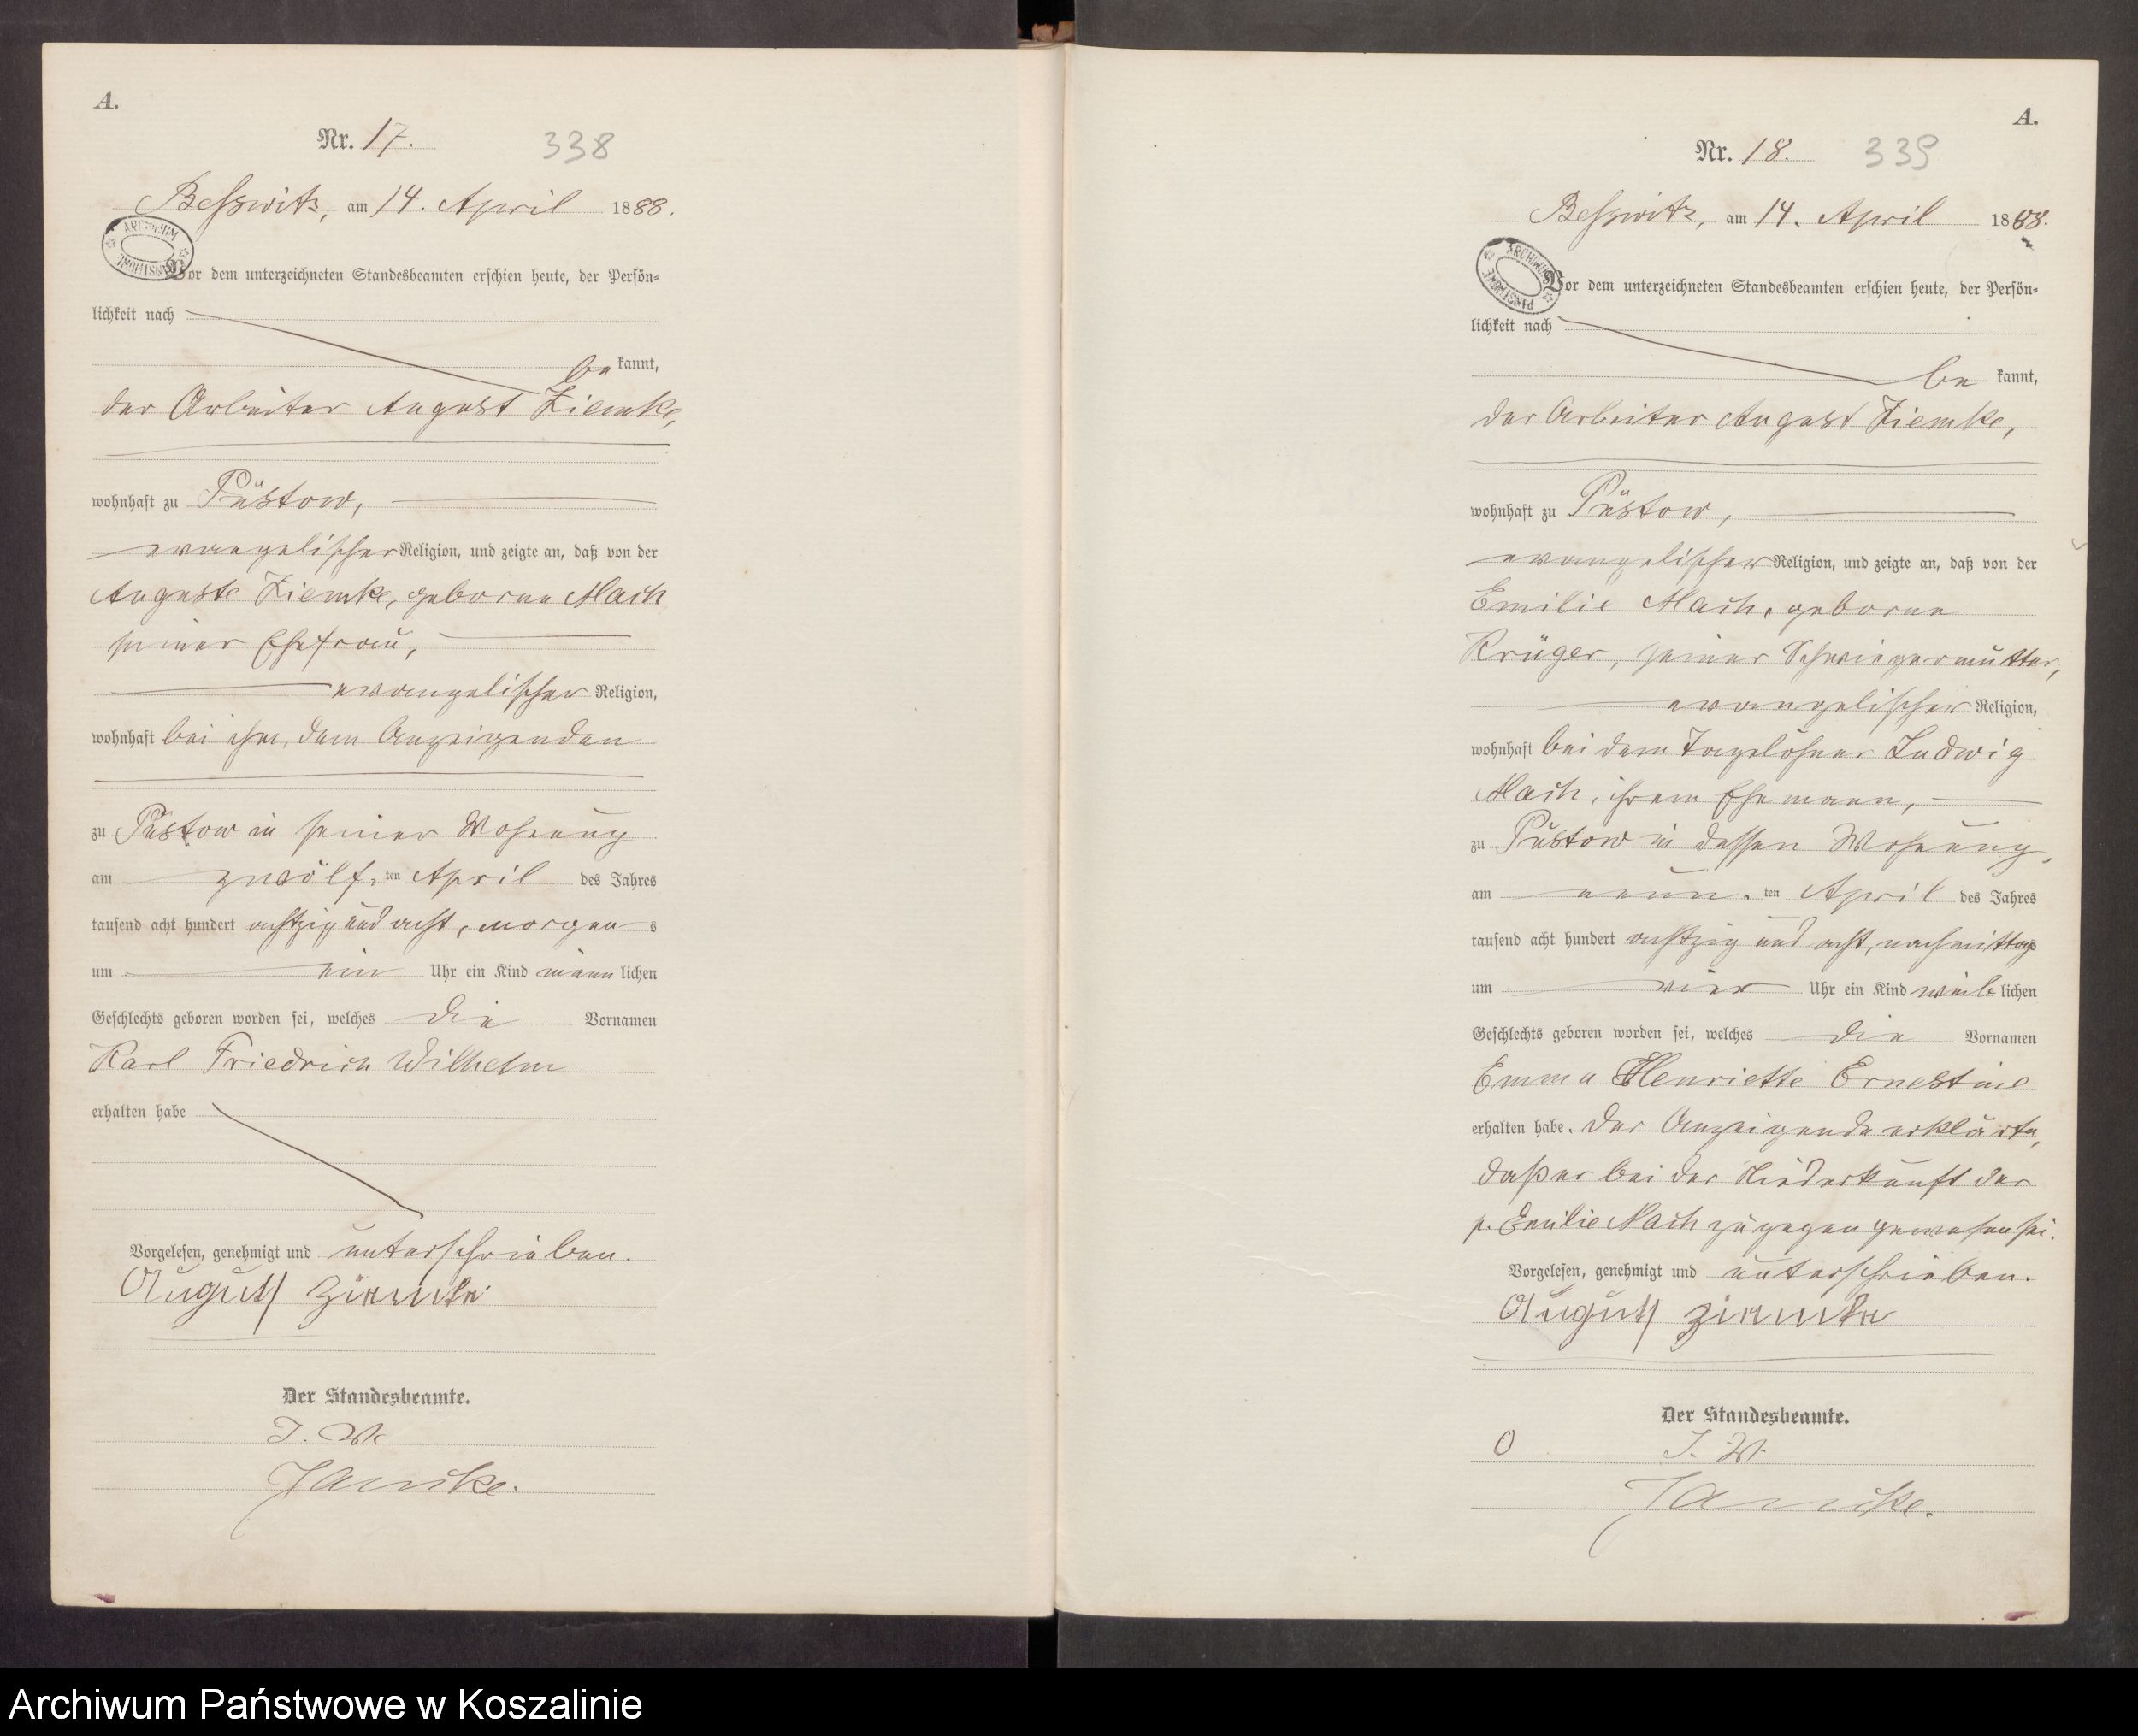 A.
Nr. 17. 338
Besswitz, am 14. April 1888.
ARCHIWUM
PAŃSTWOWE
Vor dem unterzeichneten Standesbeamten erschien heute, der Persön-
lichkeit nach
be kannt,
der Arbeiter August Ziemke,
wohnhaft zu Püstow,
evangelischer Religion, und zeigte an, daß von der
Auguste Ziemke, geborne Mach
seiner Ehefrau,
evangelischer Religion,
wohnhaft bei ihm, dem Anzeigenden
zu Püstow in seiner Wohnung
am zwölf ten April des Jahres
tausend acht hundert achtzig und acht, morgen s
um ein Uhr ein Kind männ lichen
Geschlechts geboren worden sei, welches die Vornamen
Karl Friedrich Wilhelm
erhalten habe
Vorgelesen, genehmigt und unterschrieben.
August Ziemke
Der Standesbeamte.
J. V.
A.
Nr. 18. 339
Besswitz, am 14. April 1888.
ARCHIWUM
PAŃSTWOWE
Vor dem unterzeichneten Standesbeamten erschien heute, der Persön-
lichkeit nach
be kannt,
der Arbeiter August Ziemke,
wohnhaft zu Püstow,
evangelischer Religion, und zeigte an, daß von der
Emilie Mach, geborne
Krüger, seiner Schwiegermutter,
evangelischer Religion,
wohnhaft bei dem Tagelöhner Ludwig
Mach, ihrem Ehemann,
zu Püstow in dessen Wohnung,
am neun. ten April des Jahres
tausend acht hundert achtzig und acht, nachmittags
um vier Uhr ein Kind weib lichen
Geschlechts geboren worden sei, welches die Vornamen
Emma Henriette Ernestine
erhalten habe. Der Anzeigende erklärte,
daß er bei der Niederkunft der
p. Emilie Mach zugegen gewesen sei.
Vorgelesen, genehmigt und unterschrieben.
August Ziemke
Der Standesbeamte.
J. V.
Archiwum Państwowe w Koszalinie